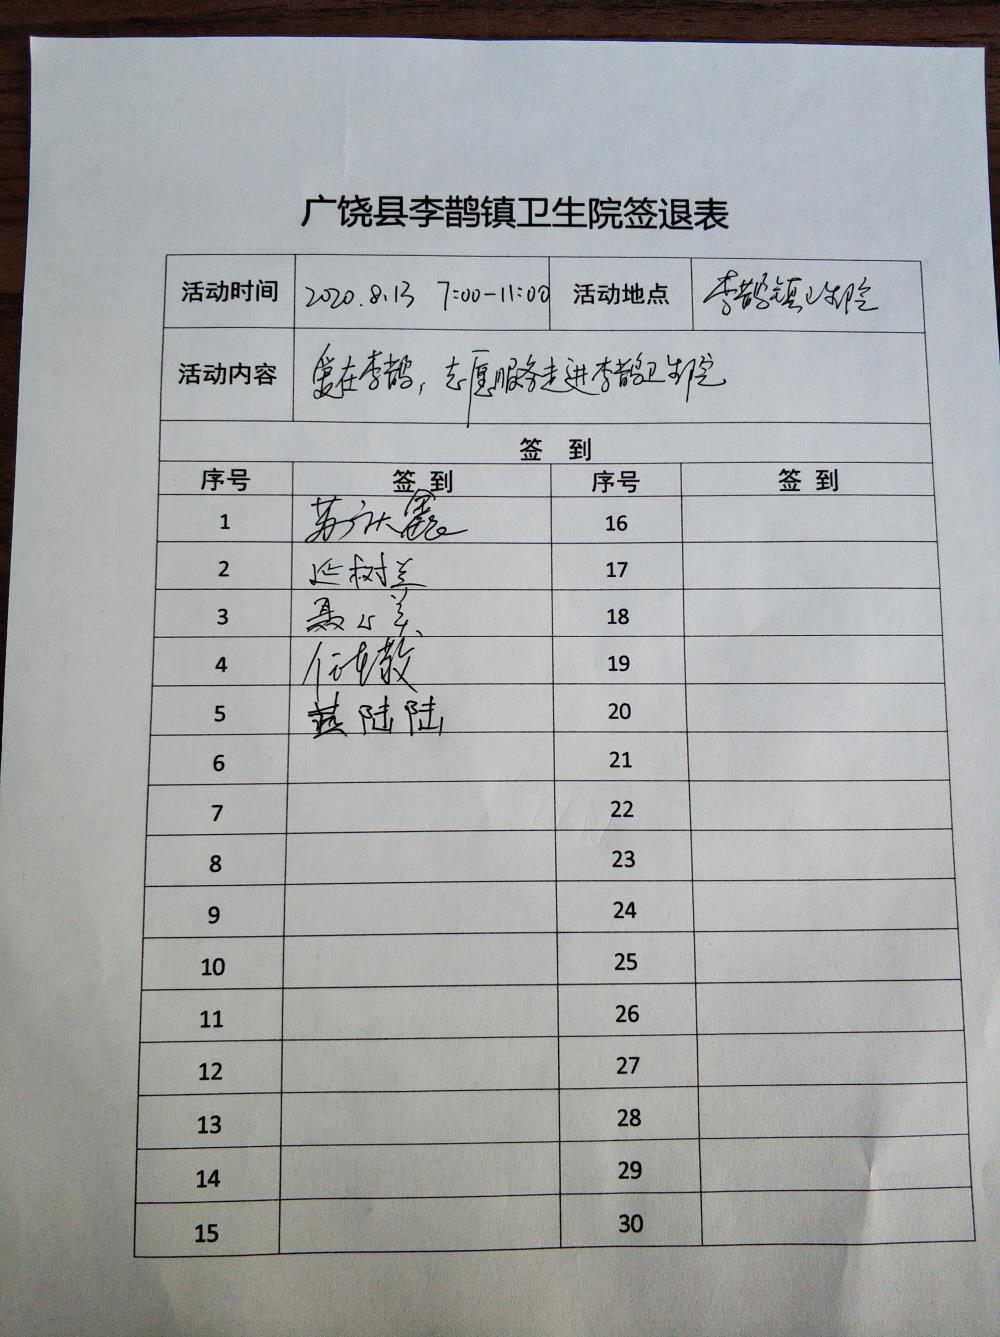 广饶县李鹊镇卫生院签退表
活动时间 2020.8.13 7:00-11:00 活动地点 李鹊镇卫生院
活动内容 爱在李鹊，志愿服务走进李鹊卫生院
签 到
序号 签 到 序号 签 到
1 16
2 延树兰 17
3 18
4 19
5 陆陆 20
6 21
7 22
8 23
9 24
10 25
11 26
12 27
13 28
14 29
15 30